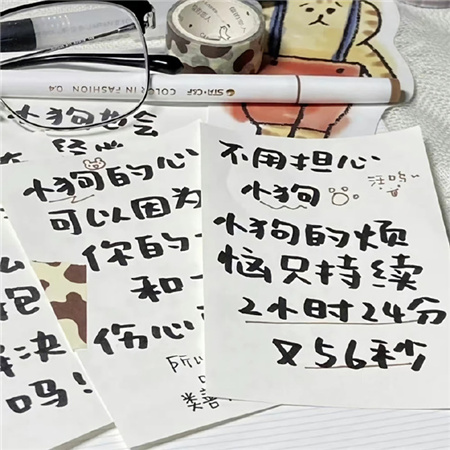 STA·C&F COLOR IN FASHION 0.4
小狗也会
小狗的心
可以因为
你的一
和一
伤心
所
类
抱
决
吗!
不用担心
小狗
汪呜~
小狗的烦
恼只持续
2小时24分
又56秒